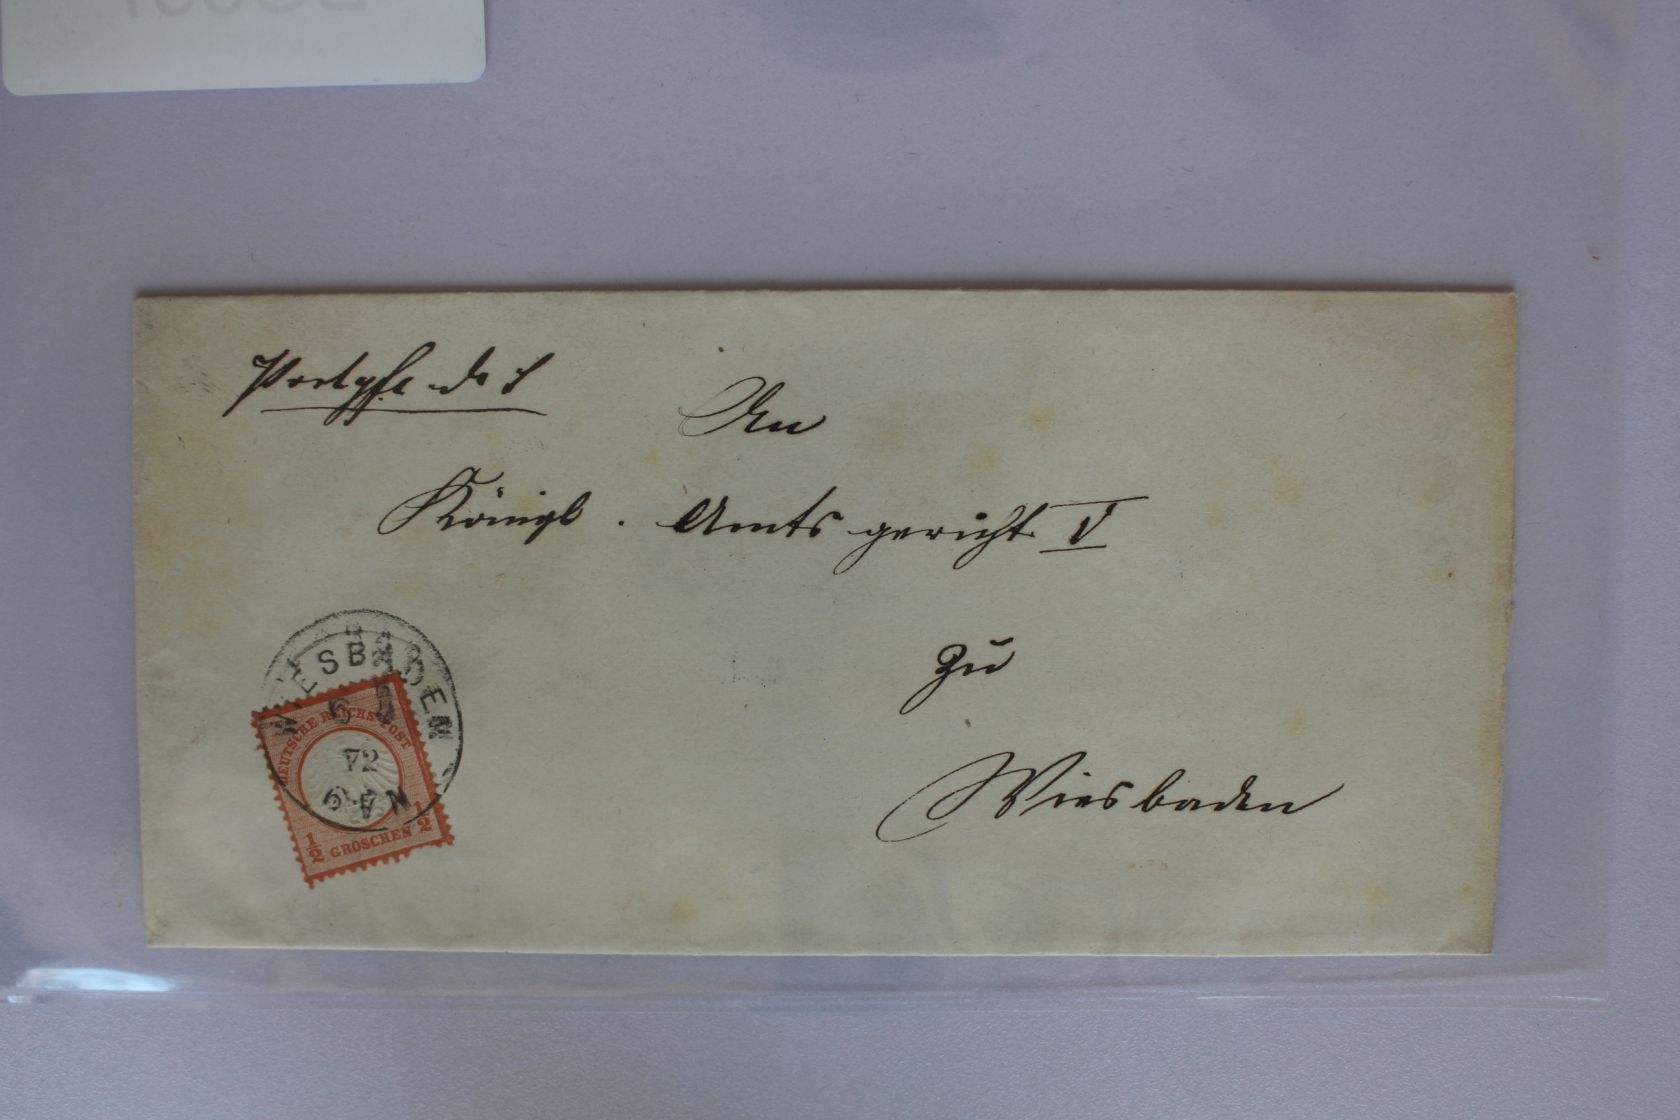 An
Königl. Amtsgericht V
zu
Wiesbaden
WIESBADEN
72
6-7 N
DEUTSCHE REICHS-POST
1/2 GROSCHEN 1/2